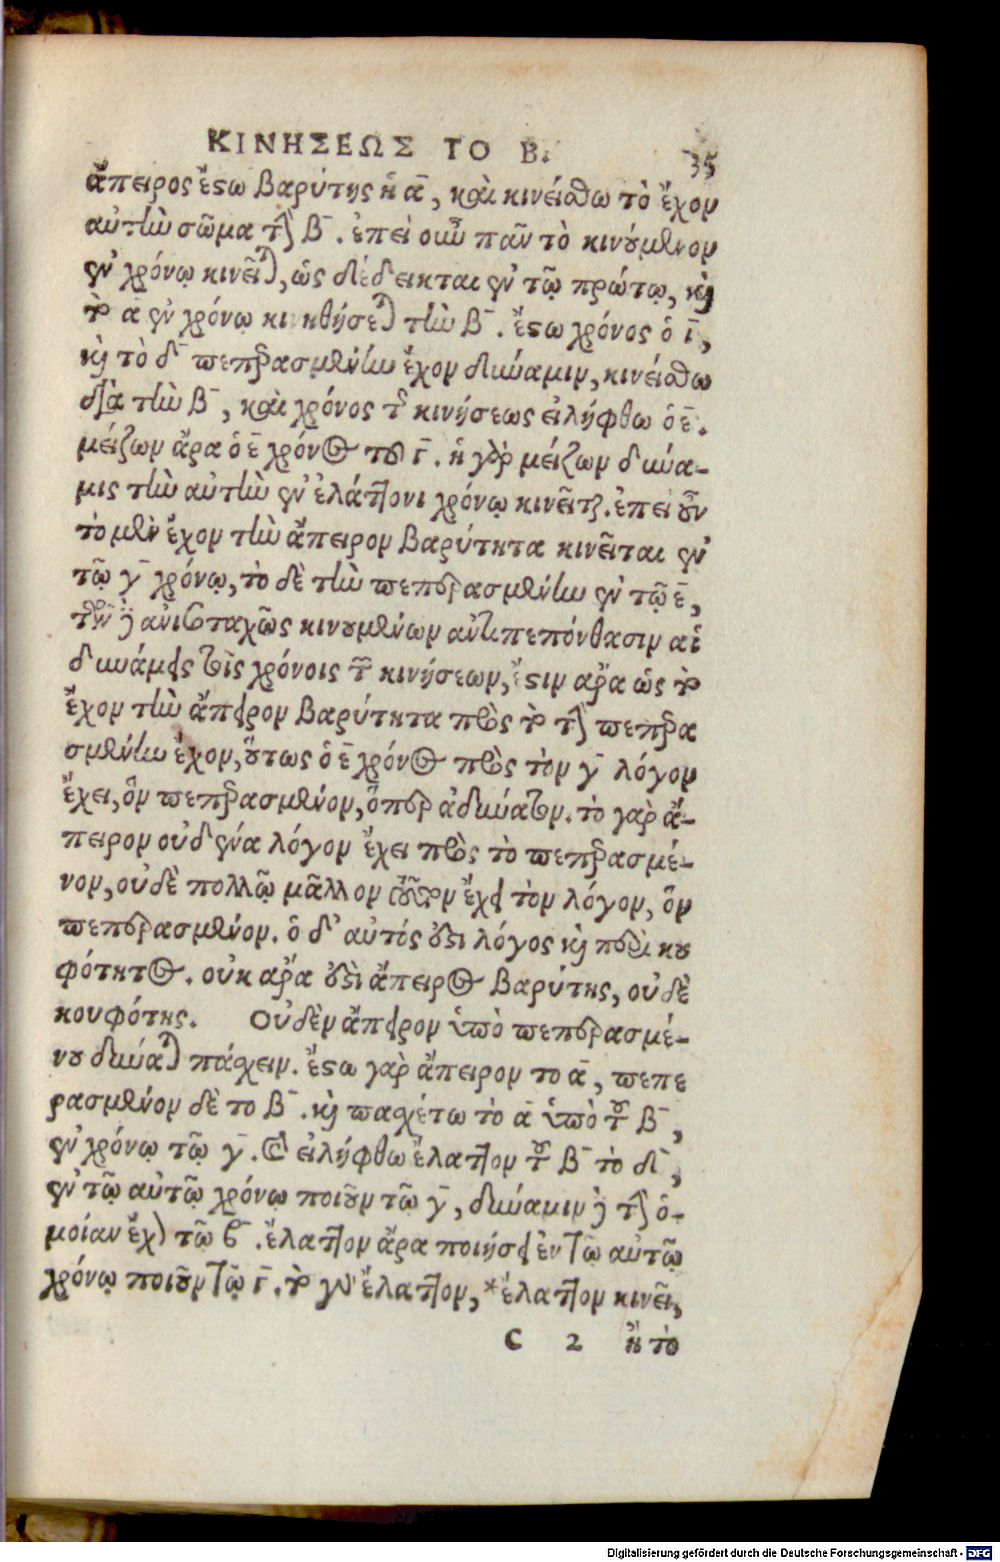 ΚΙΝΗΣΕΩΣ ΤΟ Β.
35
ἄπειρος ἔστω βαρύτης ἡ α̅, καὶ κινείσθω τὸ ἔχον
αὐτὴν σῶμα τὴν β̅. ἐπεὶ οὖν πᾶν τὸ κινούμενον
ἐν χρόνῳ κινεῖται, ὡς δέδεικται ἐν τῷ πρώτῳ, καὶ
τὸ α̅ ἐν χρόνῳ κινηθήσεται τὴν β̅. ἔστω χρόνος ὁ Γ̅,
καὶ τὸ δ̅ πεπερασμένην ἔχον δύναμιν, κινείσθω
διὰ τὴν β̅, καὶ χρόνος τῆς κινήσεως εἰλήφθω ὁ ε̅.
μείζων ἄρα ὁ ε̅ χρόνος τοῦ Γ̅. ἡ γὰρ μείζων δύνα-
μις τὴν αὐτὴν ἐν ἐλάττονι χρόνῳ κινεῖται. ἐπεὶ οὖν
τὸ μὲν ἔχον τὴν ἄπειρον βαρύτητα κινεῖται ἐν
τῷ γ̅ χρόνῳ, τὸ δὲ τὴν πεπερασμένην ἐν τῷ ε̅,
τῶν δὲ ἀνισοταχῶς κινουμένων ἀντιπεπόνθασιν αἱ
δυνάμεις τοῖς χρόνοις τῶν κινήσεων, ἔστιν ἄρα ὡς τὸ
ἔχον τὴν ἄπειρον βαρύτητα πρὸς τὸ τὴν πεπερα
σμένην ἔχον, οὕτως ὁ ε̅ χρόνος πρὸς τὸν γ̅ λόγον
ἔχει, ὃν πεπερασμένον, ὅπερ ἀδύνατον. τὸ γὰρ ἄ-
πειρον οὐδένα λόγον ἔχει πρὸς τὸ πεπερασμέ-
νον, οὐδὲ πολλῷ μᾶλλον τοῦτον ἔχει τὸν λόγον, ὃν
πεπερασμένον. ὁ δ' αὐτός ἐστι λόγος καὶ περὶ κου
φότητος. οὐκ ἄρα ἐστὶ ἄπειρος βαρύτης, οὐδὲ
κουφότης. Οὐδὲν ἄπειρον ὑπὸ πεπερασμέ-
νου δύναται πάσχειν. ἔστω γὰρ ἄπειρον το α̅, πεπε
ρασμένον δὲ το β̅. καὶ πασχέτω τὸ α̅ ὑπὸ τοῦ β̅,
ἐν χρόνῳ τῷ γ̅. καὶ εἰλήφθω ἔλαττον τοῦ β̅ τὸ δ̅,
ἐν τῷ αὐτῷ χρόνῳ ποιοῦν τῷ γ̅, δύναμιν δὲ τὴν ὁ-
μοίαν ἔχον τῷ β̅. ἔλαττον ἄρα ποιήσει ἐν τῷ αὐτῷ
χρόνῳ ποιοῦν τῷ Γ̅. τὸ γὰρ ἔλαττον, *ἔλαττον κινεῖ,
C 2 ἢ τὸ
Digitalisierung gefördert durch die Deutsche Forschungsgemeinschaft - DFG